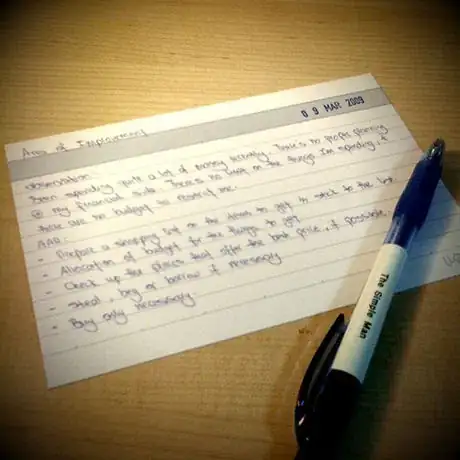 09 MAR 2009
Area of Improvement
Observation:
Been spending quite a lot of money recently. There's no proper planning
@ my financial side. There is no limit on the things I'm spending, &
there are no budget to restrict me.
AAR:
- Prepare a shopping list on the items to get, to stick to the list.
- Allocation of budget for the things to get
- Check up the places that offer the best price, if possible.
- Steal, beg or borrow if necessary.
- Buy only necessary
The Simple Man